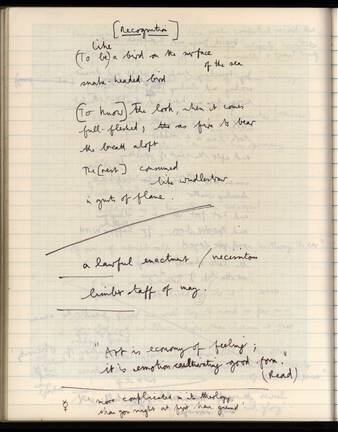 [Recognition]
like
(To be) a bird on the surface
of the sea
snake-headed bird
(To know) the look, when it comes
full-fleshed; as fire to bear
the breath aloft
The [rest] consumed
like windlestraw
in gusts of flame.
a lawful enactment / necessitous
limber staff of may.
"Art is economy of feeling;
it is emotion cultivating good form."
(Read)
more complicated in its theology
than you might at first have